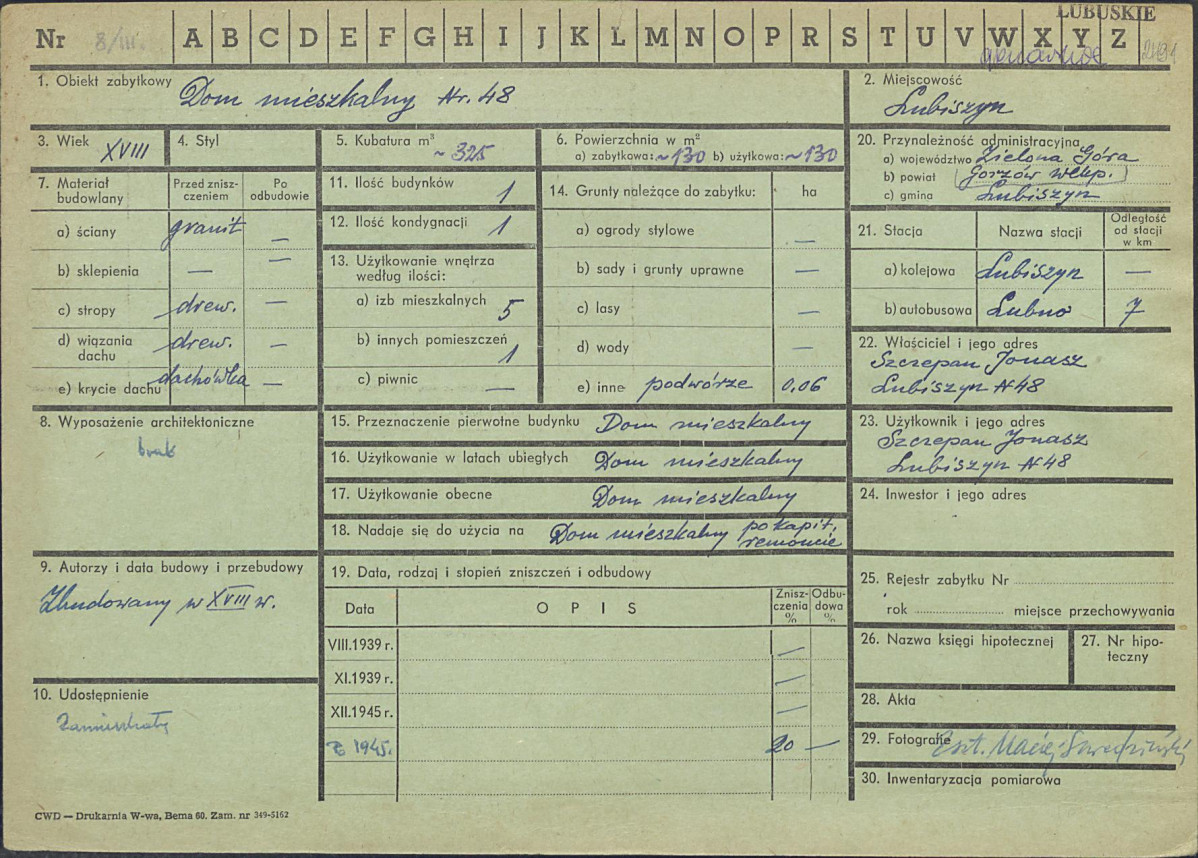 LUBUSKIE
Nr 8/III. A B C D E F G H I J K L M N O P R S T U V W X Y Z
1. Obiekt zabytkowy Dom mieszkalny Nr. 48
2. Miejscowość
Lubiszyn
3. Wiek XVIII
4. Styl
5. Kubatura m³
~ 325
6. Powierzchnia w m²
a) zabytkowa: ~130 b) użytkowa: ~130
20. Przynależność administracyjna
a) województwo Zielona Góra
b) powiat Gorzów Wlkp.
c) gmina Lubiszyn
7. Materiał budowlany
Przed zniszczeniem
Po odbudowie
a) ściany granit —
b) sklepienia — —
c) stropy drew. —
d) wiązania dachu drew. —
e) krycie dachu dachówka —
11. Ilość budynków 1
12. Ilość kondygnacji 1
13. Użytkowanie wnętrza
według ilości:
a) izb mieszkalnych 5
b) innych pomieszczeń 1
c) piwnic —
14. Grunty należące do zabytku: ha
a) ogrody stylowe —
b) sady i grunty uprawne —
c) lasy —
d) wody —
e) inne podwórze 0.06
21. Stacja Nazwa stacji Odległość
od stacji
w km
a) kolejowa Lubiszyn —
b) autobusowa Lubno 7
22. Właściciel i jego adres
Szczepan Jonasz
Lubiszyn N 48
8. Wyposażenie architektoniczne
brak
15. Przeznaczenie pierwotne budynku Dom mieszkalny
16. Użytkowanie w latach ubiegłych Dom mieszkalny
17. Użytkowanie obecne Dom mieszkalny
18. Nadaje się do użycia na Dom mieszkalny po kapit.
remoncie
23. Użytkownik i jego adres
Szczepan Jonasz
Lubiszyn N 48
24. Inwestor i jego adres
9. Autorzy i data budowy i przebudowy
Zbudowany w XVIII w.
19. Data, rodzaj i stopień zniszczeń i odbudowy
Data OPIS Zniszczenia % Odbudowa %
VIII.1939 r. —
XI.1939 r. —
XII.1945 r. —
Z 1945. 20 —
25. Rejestr zabytku Nr
rok miejsce przechowywania
26. Nazwa księgi hipotecznej
27. Nr hipoteczny
10. Udostępnienie
Zamieszkały
28. Akta
29. Fotografie
30. Inwentaryzacja pomiarowa
CWD — Drukarnia W-wa, Bema 60. Zam. nr 349-5162